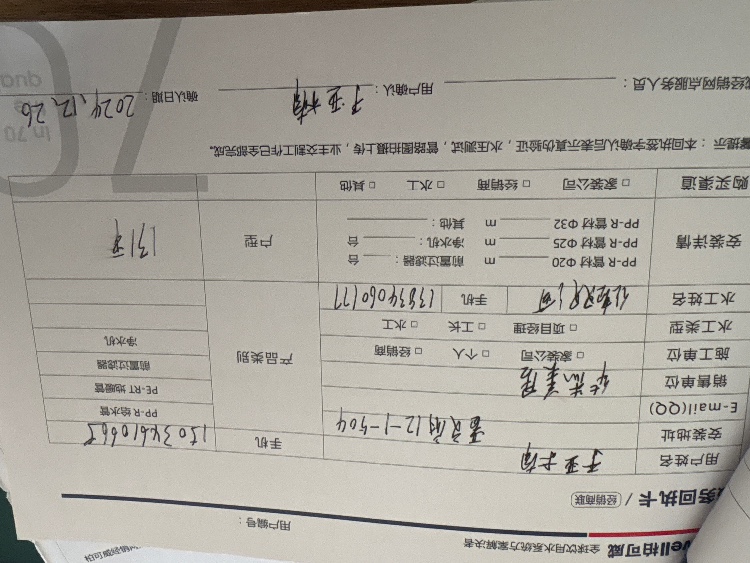 well柏可威 全球饮用水系统方案解决者
务回执卡 / 经销商联
用户编号：
用户姓名 于亚楠 手机 15034610665
安装地址 12-1-504
E-mail(QQ)
销售单位
施工单位 □ 家装公司 □ 个人 □ 经销商
水工类型 □ 项目经理 □ 工长 □ 水工
水工姓名 手机 13834060177
产品类别
PP-R 给水管
PE-RT 地暖管
前置过滤器
净水机
安装详情
PP-R 管材 Φ20 m 前置过滤器： 台
PP-R 管材 Φ25 m 净水机： 台
PP-R 管材 Φ32 m 其他：
户型 131平
购买渠道 □ 家装公司 □ 经销商 □ 水工 □ 其他
提示：本回执签字确认后表示真伪验证，水压测试，管路图拍摄上传，业主交割工作已全部完成。
或经销网点服务人员： 用户确认：于亚楠 确认日期：2024.12.26
in 70